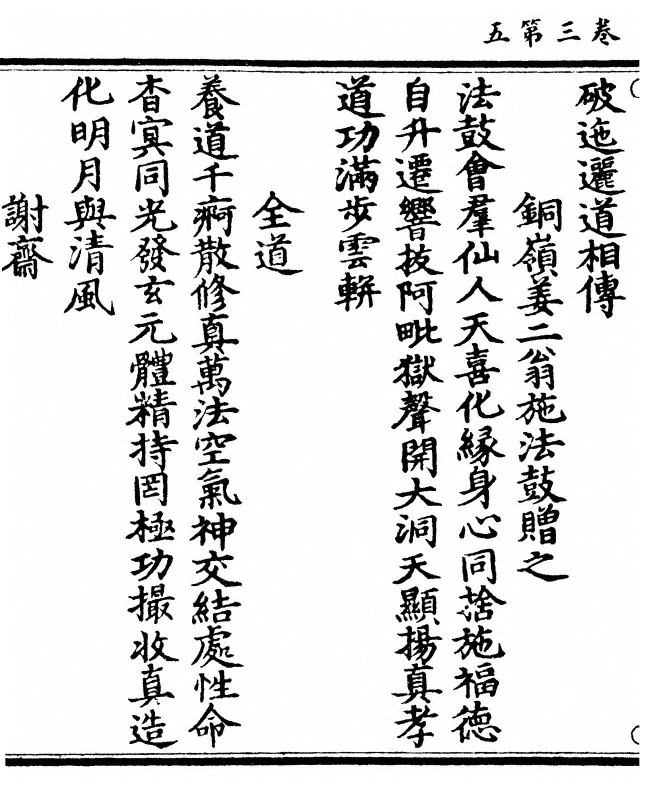 卷三第五
破迤邐道相傳
銅嶺姜二翁施法鼓贈之
法鼓會羣仙人天喜化緣身心同捨施福德
自升遷響技阿毗獄聲開大洞天顯揚真孝
道功滿步雲軿
全道
養道千痾散修真萬法空氣神交結處性命
杳冥同光發玄元體精持罔極功撮收真造
化明月與清風
謝齋